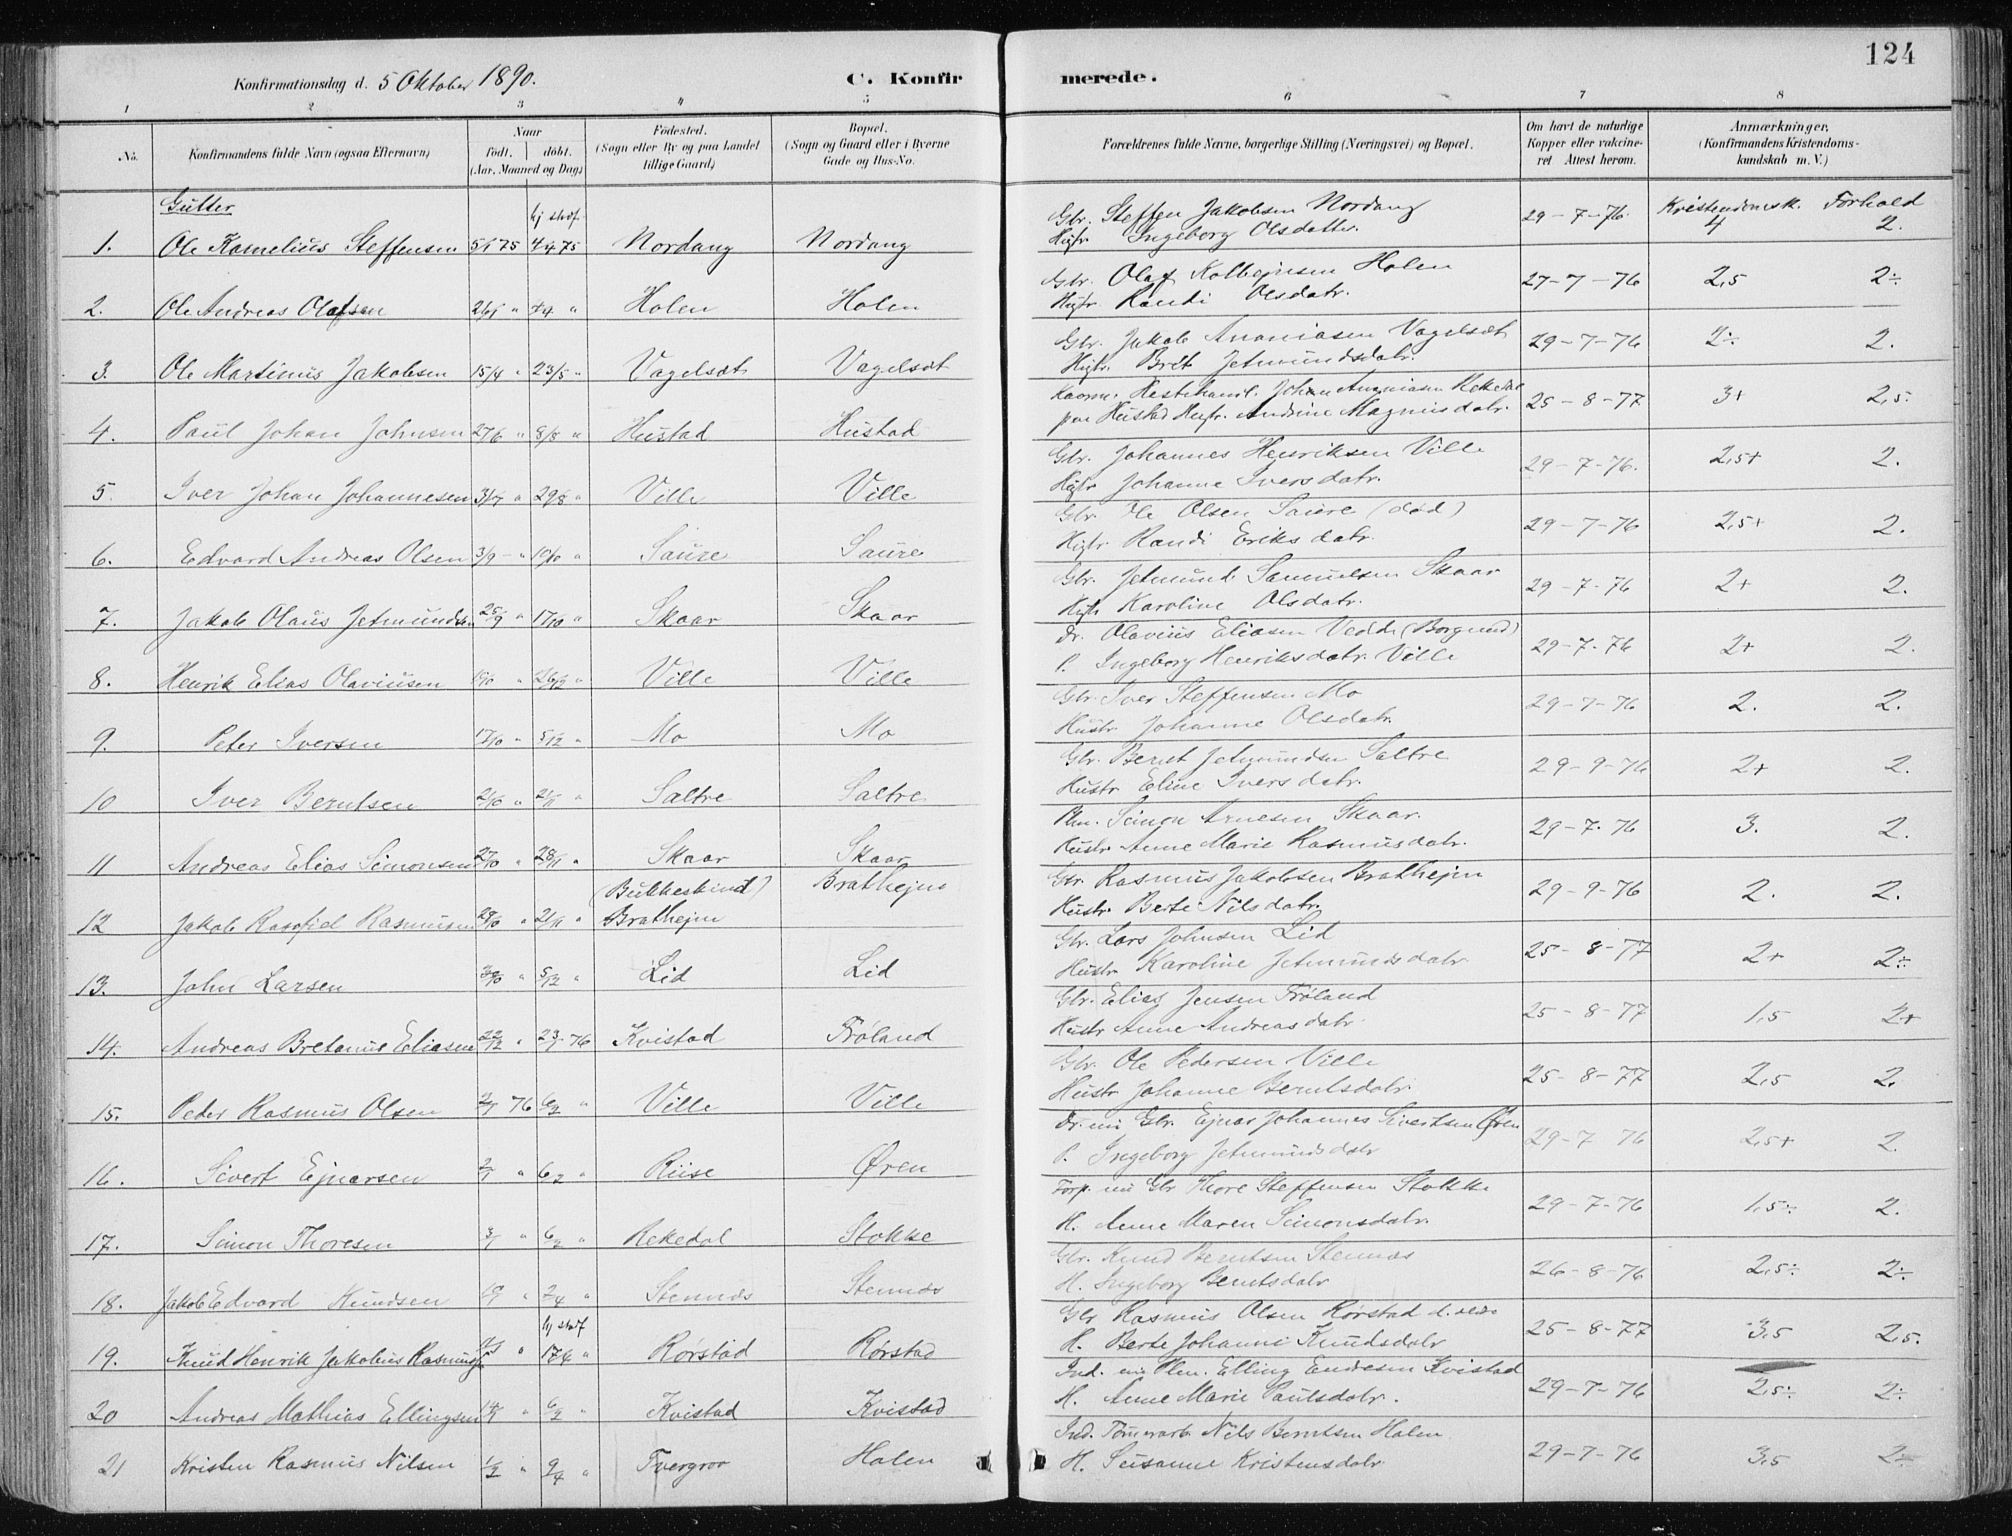 124
Konfirmationsdag d. 5 Oktober 1890.
C. Konfirmerede.
1 2 3 4 5 6 7 8
No.
Konfirmandens fulde Navn (ogsaa Efternavn)
Naar
födt. döbt.
(Aar, Maaned og Dag)
Födested.
(Sogn eller By og paa Landet
tillige Gaard)
Bopæl.
(Sogn og Gaard eller i Byerne
Gade og Hus-No.
Forældrenes fulde Navne, borgerlige Stilling (Næringsvei) og Bopæl.
Om havt de naturlige
Kopper eller vakcine-
ret Attest herom.
Anmærkninger,
(Konfirmandens Kristendoms-
kundskab m. V.)
Gutter
Kristendomsk. Forhold
Gbr. Steffen Jakobsen Nordang
1. Ole Kornelius Steffensen 5/1 75 4/4 75 Nordang Nordang Hustr. Ingeborg Olsdatter. 29-7-76. 4 2.
Gbr. Olaf Kolbejnsen Holen
2. Ole Andreas Olafsen Holen Holen Hustr. Randi Olsdatr. 27-7-76 2,5 2÷
Gbr. Jakob Ananiasen Vagelsæt
3. Ole Martinus Jakobsen 15/4 " 23/5 " Vagelsæt Vagelsæt Hustr. Brit Jetmundsdatr. 29-7-76 2÷ 2.
Hestehandl. Johan Ananiasen Rekedal
4. Paul Johan Johnsen 27/6 " 8/8 " Hustad Hustad paa Hustad Hustr. Andrine Magnusdatr. 25-8-77 3+ 2,5.
Gbr. Johannes Henriksen Ville
5. Iver Johan Johannesen 31/7 " 29/8 " Ville Ville Hustr. Johanne Iversdatr. 29-7-76. 2,5+ 2.
Gbr. Ole Olsen Saure (död)
6. Edvard Andreas Olsen 3/9 " 10/10 " Saure Saure Hustr. Randi Eriksdatr. 29-7-76 2,5+ 2.
Gbr. Jetmund Samuelsen Skaar
7. Jakob Olaus Jetmunds. 25/9 " 17/10 " Skaar Skaar Hustr. Karoline Olsdatr. 29-7-76 2+ 2.
Dr. Olavius Eliasen Vedde (Borgund)
8. Henrik Elias Olaviusen " 26/12 " Ville Ville P. Ingeborg Henriksdatr. Ville 29-7-76 2+ 2.
Gbr. Iver Steffensen Mo
9. Peter Iversen 17/10 " 5/12 " Mo Mo Hustr. Johanne Olsdatr. 29-7-76 2. 2.
Gbr. Bernt Jetmundsen Saltre
10 Iver Berntsen 21/10 " 21/11 " Saltre Saltre Hustr. Eline Iversdatr. 29-9-76 2+ 2.
Plm. Simon Arnesen Skaar.
11 Andreas Elias Simonsen 27/10 " 28/11 " Skaar Skaar Hustr. Anne Marie Rasmusdatr. 29-7-76 3. 2.
(Bukkestind) Brathejm Gbr. Rasmus Jakobsen Brathejm
12 Jakob Rasmusen 28/10 " 21/11 " Brathejm Hustr. Berte Nilsdatr. 29-9-76 2. 2.
Gbr. Lars Johnsen Lid
13. John Larsen 30/10 " 5/12 " Lid Lid Hustr. Karoline Jetmundsdatr. 25-8-77 2+ 2÷
Gbr. Elias Jensen Fröland
14. Andreas Bretanus Eliasen 22/12 " 23/1 76 Kvistad Fröland Hustr. Anne Andreasdatr. 25-8-77 1,5 2+
Gbr. Ole Pedersen Ville
15. Peder Rasmus Olsen 2/1 76 6/2 " Ville Ville Hustr. Johanne Berntsdatr. 25-8-77 2,5 2.
Dr. nu Gbr. Ejnar Johannes Sivertsen Øren
16. Sivert Ejnarsen 2/1 " 6/2 " Riise Øren P. Ingeborg Jetmundsdatr 29-7-76 2,5+ 2.
Forp. nu Gbr Thore Steffensen Stokke
17. Simon Thoresen 3/1 " 6/2 " Rekedal Stokke H. Anne Maren Simonsdatr. 29-7-76 1,5÷ 2.
Gbr. Knud Berntsen Stennæs
18. Jakob Edvard Knudsen " 2/4 " Stennæs Stennæs H. Ingeborg Berntsdatr 26-8-76 2,5÷ 2÷
Gbr Rasmus Olsen Rørstad
19. Knud Henrik Jakobus Rasmuss. " 17/4 " Rørstad Rørstad H. Berte Johanne Knudsdatr 25-8-77 3,5 2,5.
Ind. nu Plm. Elling Endresen Kvistad
20 Andreas Mathias Ellingsen 14/1 " 6/2 " Kvistad Kvistad H. Anne Marie Paulsdatr. 29-7-76 2,5÷ 2÷
Ind. Tömrarb. Nils Berntsen Holen
21 Kristen Rasmus Nilsen 1/2 " 9/4 " Tvergrov Holen H. Susanne Kristensdatr 29-7-76 3,5 2÷